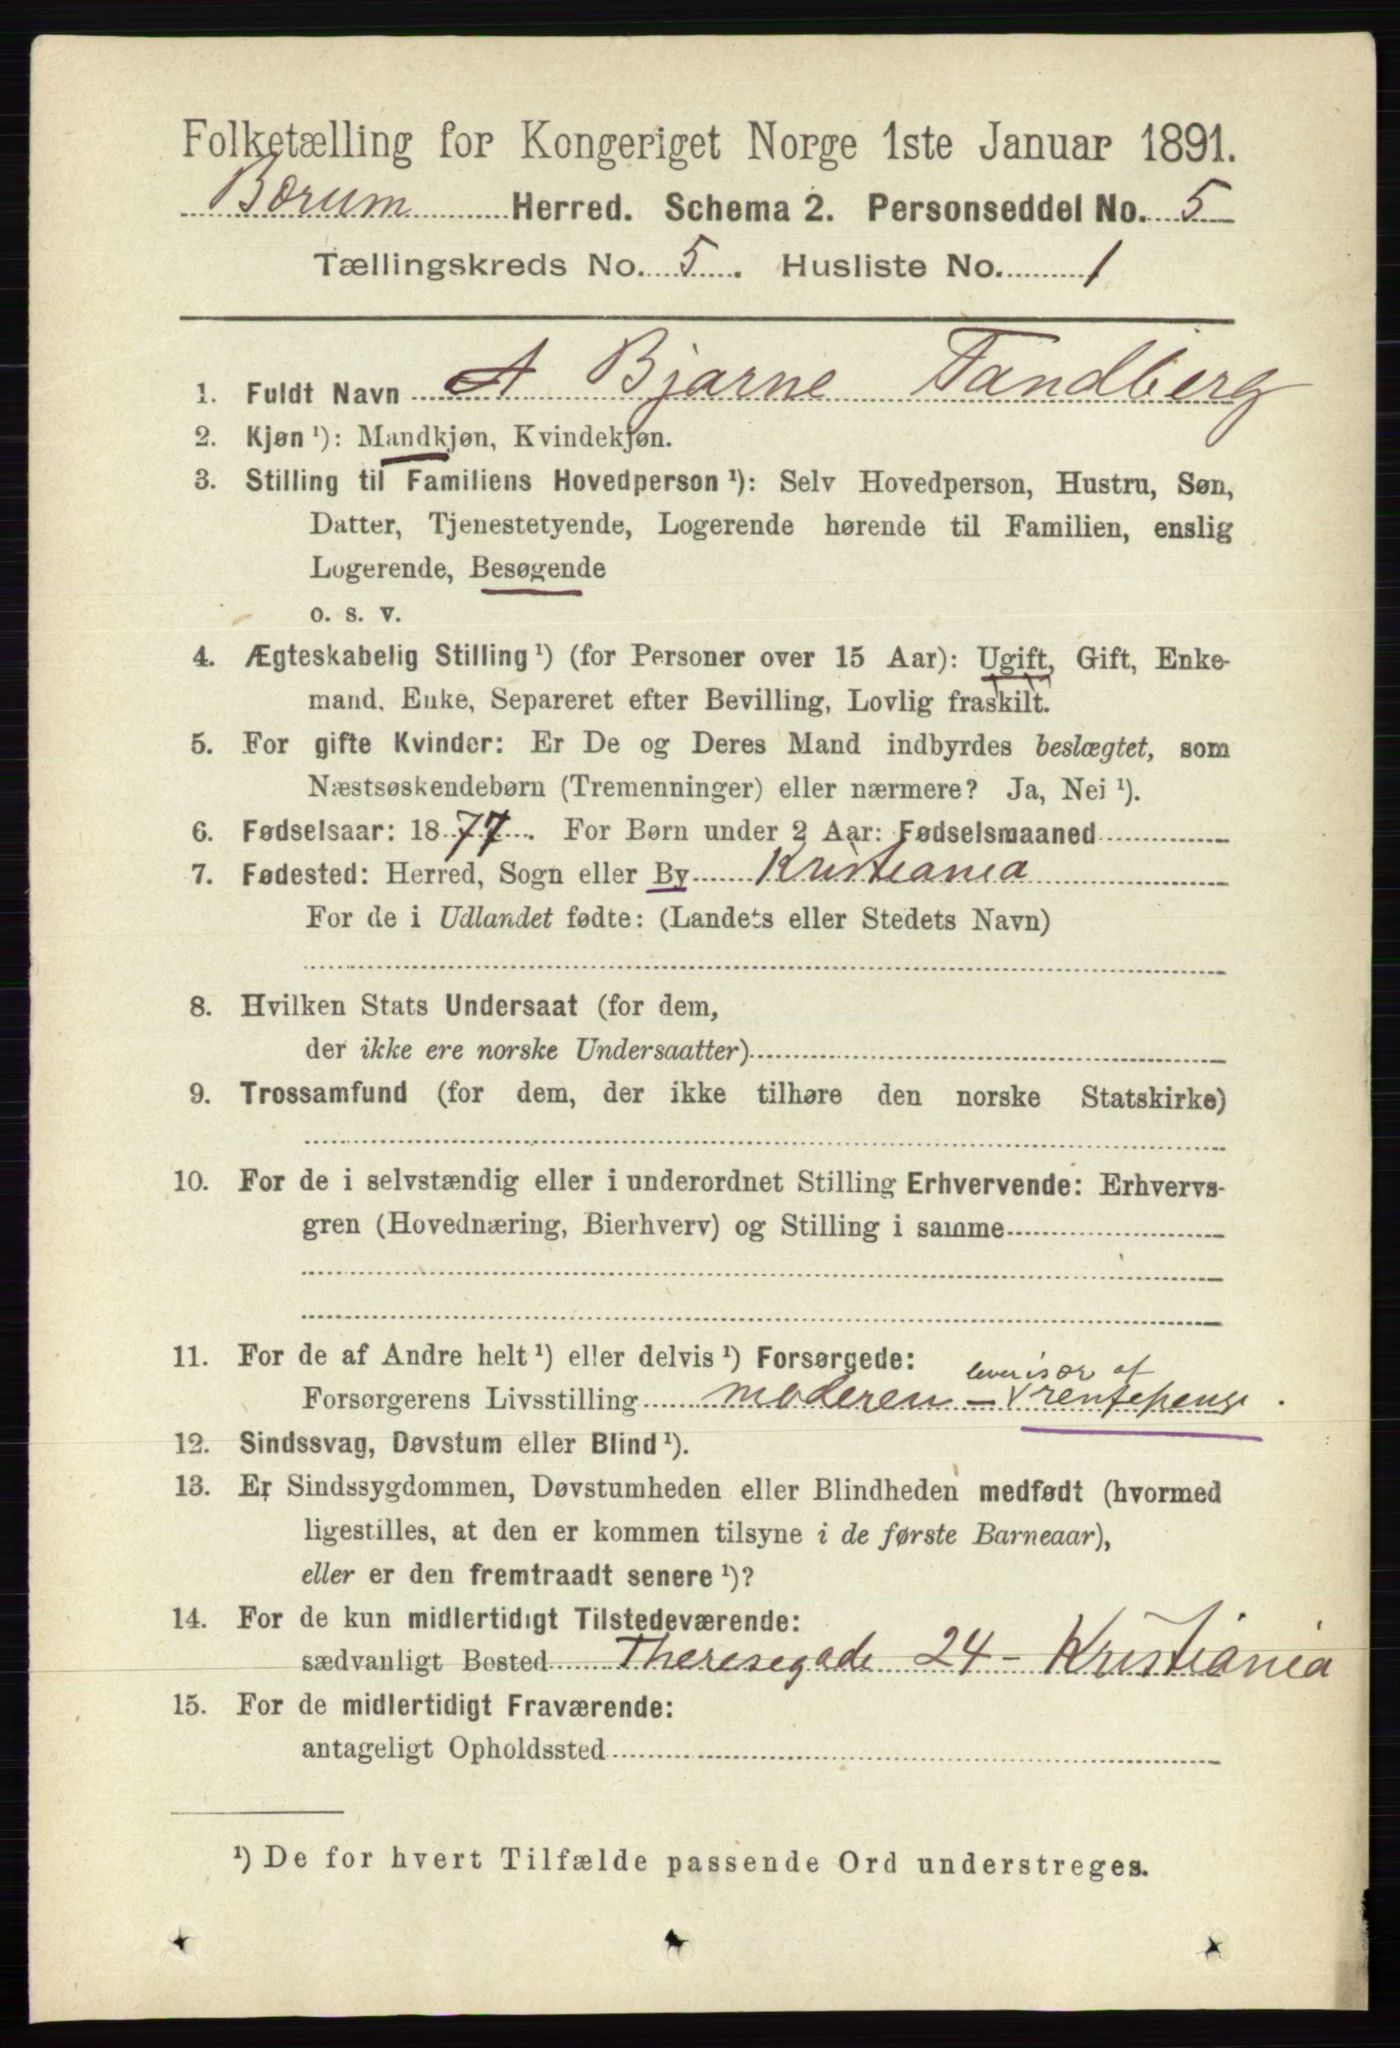 Folketælling for Kongeriget Norge 1ste Januar 1891.
Bærum Herred. Schema 2. Personseddel No. 5
Tællingskreds No. 5. Husliste No. 1
1. Fuldt Navn A Bjarne Tandberg
2. Kjøn ¹): Mandkjøn, Kvindekjøn.
3. Stilling til Familiens Hovedperson ¹): Selv Hovedperson, Hustru, Søn,
Datter, Tjenestetyende, Logerende hørende til Familien, enslig
Logerende, Besøgende
o. s. v.
4. Ægteskabelig Stilling ¹) (for Personer over 15 Aar): Ugift, Gift, Enke-
mand, Enke, Separeret efter Bevilling, Lovlig fraskilt.
5. For gifte Kvinder: Er De og Deres Mand indbyrdes beslægtet, som
Næstsøskendebørn (Tremenninger) eller nærmere? Ja, Nei ¹).
6. Fødselsaar: 1877. For Børn under 2 Aar: Fødselsmaaned
7. Fødested: Herred, Sogn eller By Kristiania
For de i Udlandet fødte: (Landets eller Stedets Navn)
8. Hvilken Stats Undersaat (for dem,
der ikke ere norske Undersaatter)
9. Trossamfund (for dem, der ikke tilhøre den norske Statskirke)
10. For de i selvstændig eller i underordnet Stilling Erhvervende: Erhvervs-
gren (Hovednæring, Bierhverv) og Stilling i samme
11. For de af Andre helt ¹) eller delvis ¹) Forsørgede:
lever især af
Forsørgerens Livsstilling moderen - rentepenge.
12. Sindssvag, Døvstum eller Blind ¹).
13. Er Sindssygdommen, Døvstumheden eller Blindheden medfødt (hvormed
ligestilles, at den er kommen tilsyne i de første Barneaar),
eller er den fremtraadt senere ¹)?
14. For de kun midlertidigt Tilstedeværende:
sædvanligt Bosted Theresegade 24 - Kristiania
15. For de midlertidigt Fraværende:
antageligt Opholdssted
¹) De for hvert Tilfælde passende Ord understreges.